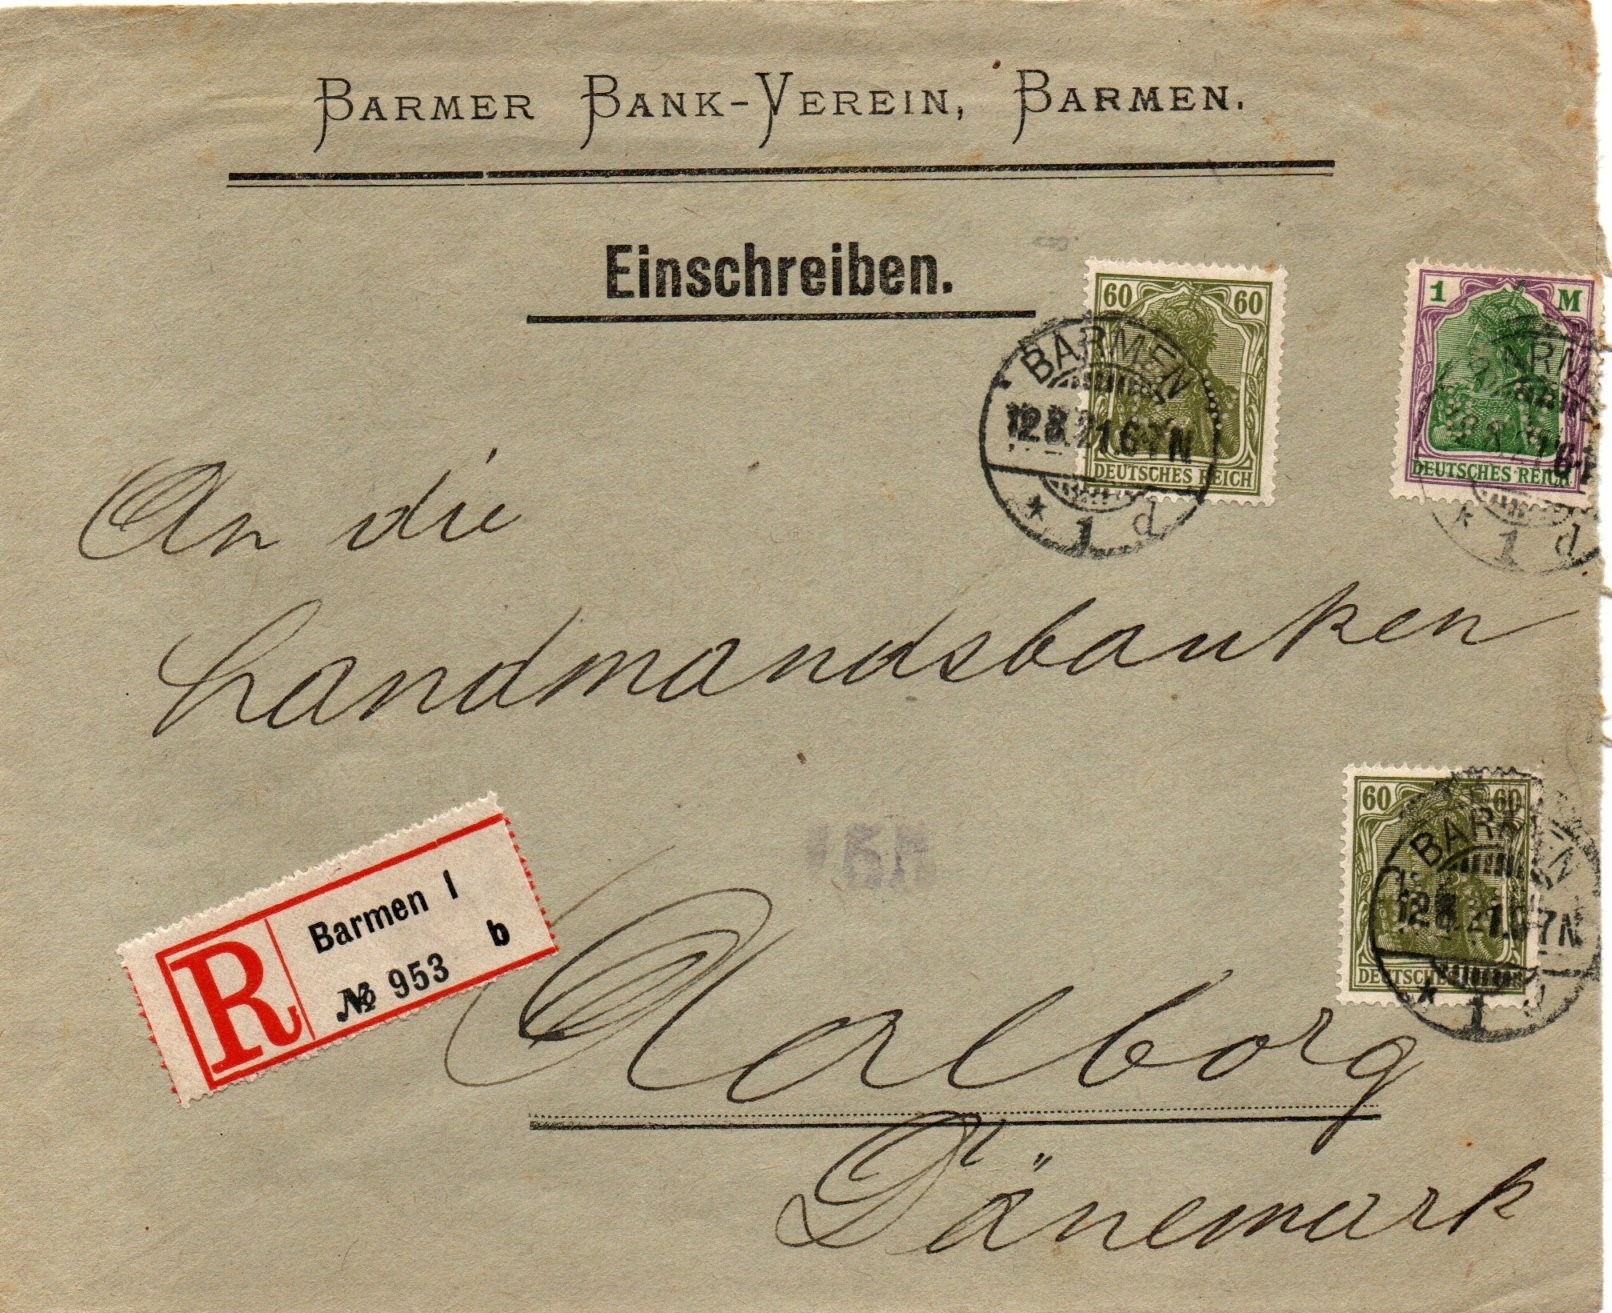 BARMER BANK-VEREIN, BARMEN.
Einschreiben.
60 60
DEUTSCHES REICH
BARMEN
12.8.21.6-7N
* 1 d
1 M
DEUTSCHES REICH
* 1 d
An die
Landmandsbanken
60 60
BARMEN
12.8.21.6-7N
* 1 d
R
Barmen 1
b
№ 953
Aalborg
Dänemark